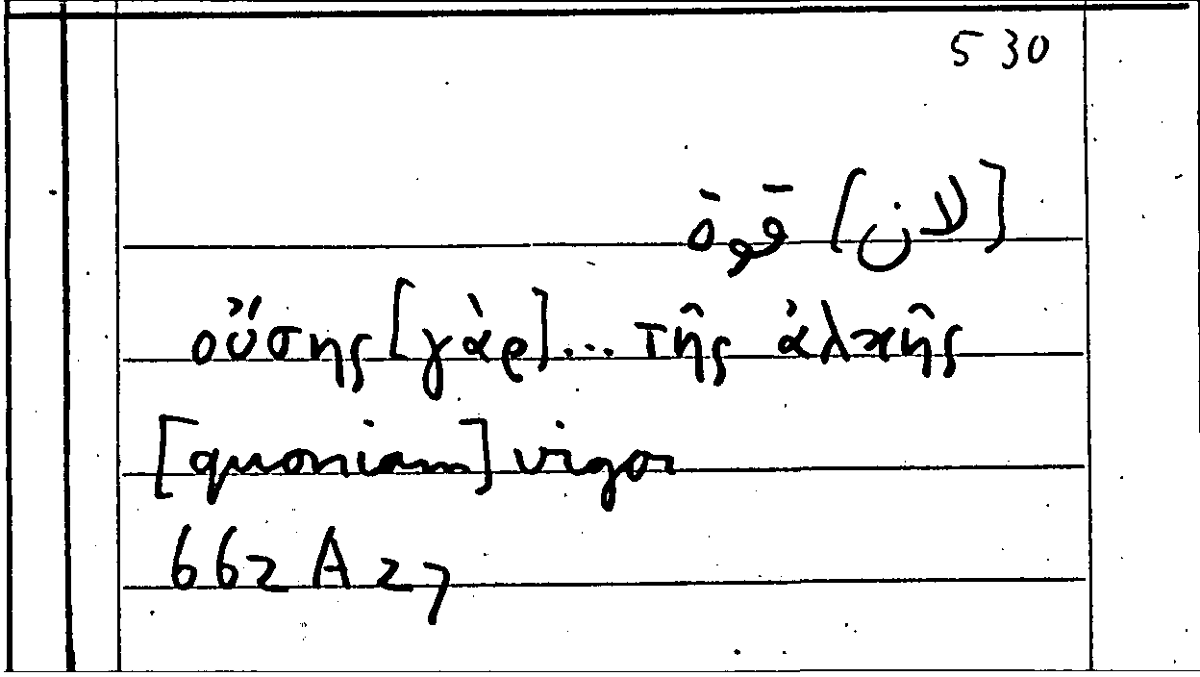 530
[لان] قوة
οὔσης [γὰρ]... τῆς ἀλκῆς
[quoniam] vigor
662 A 27